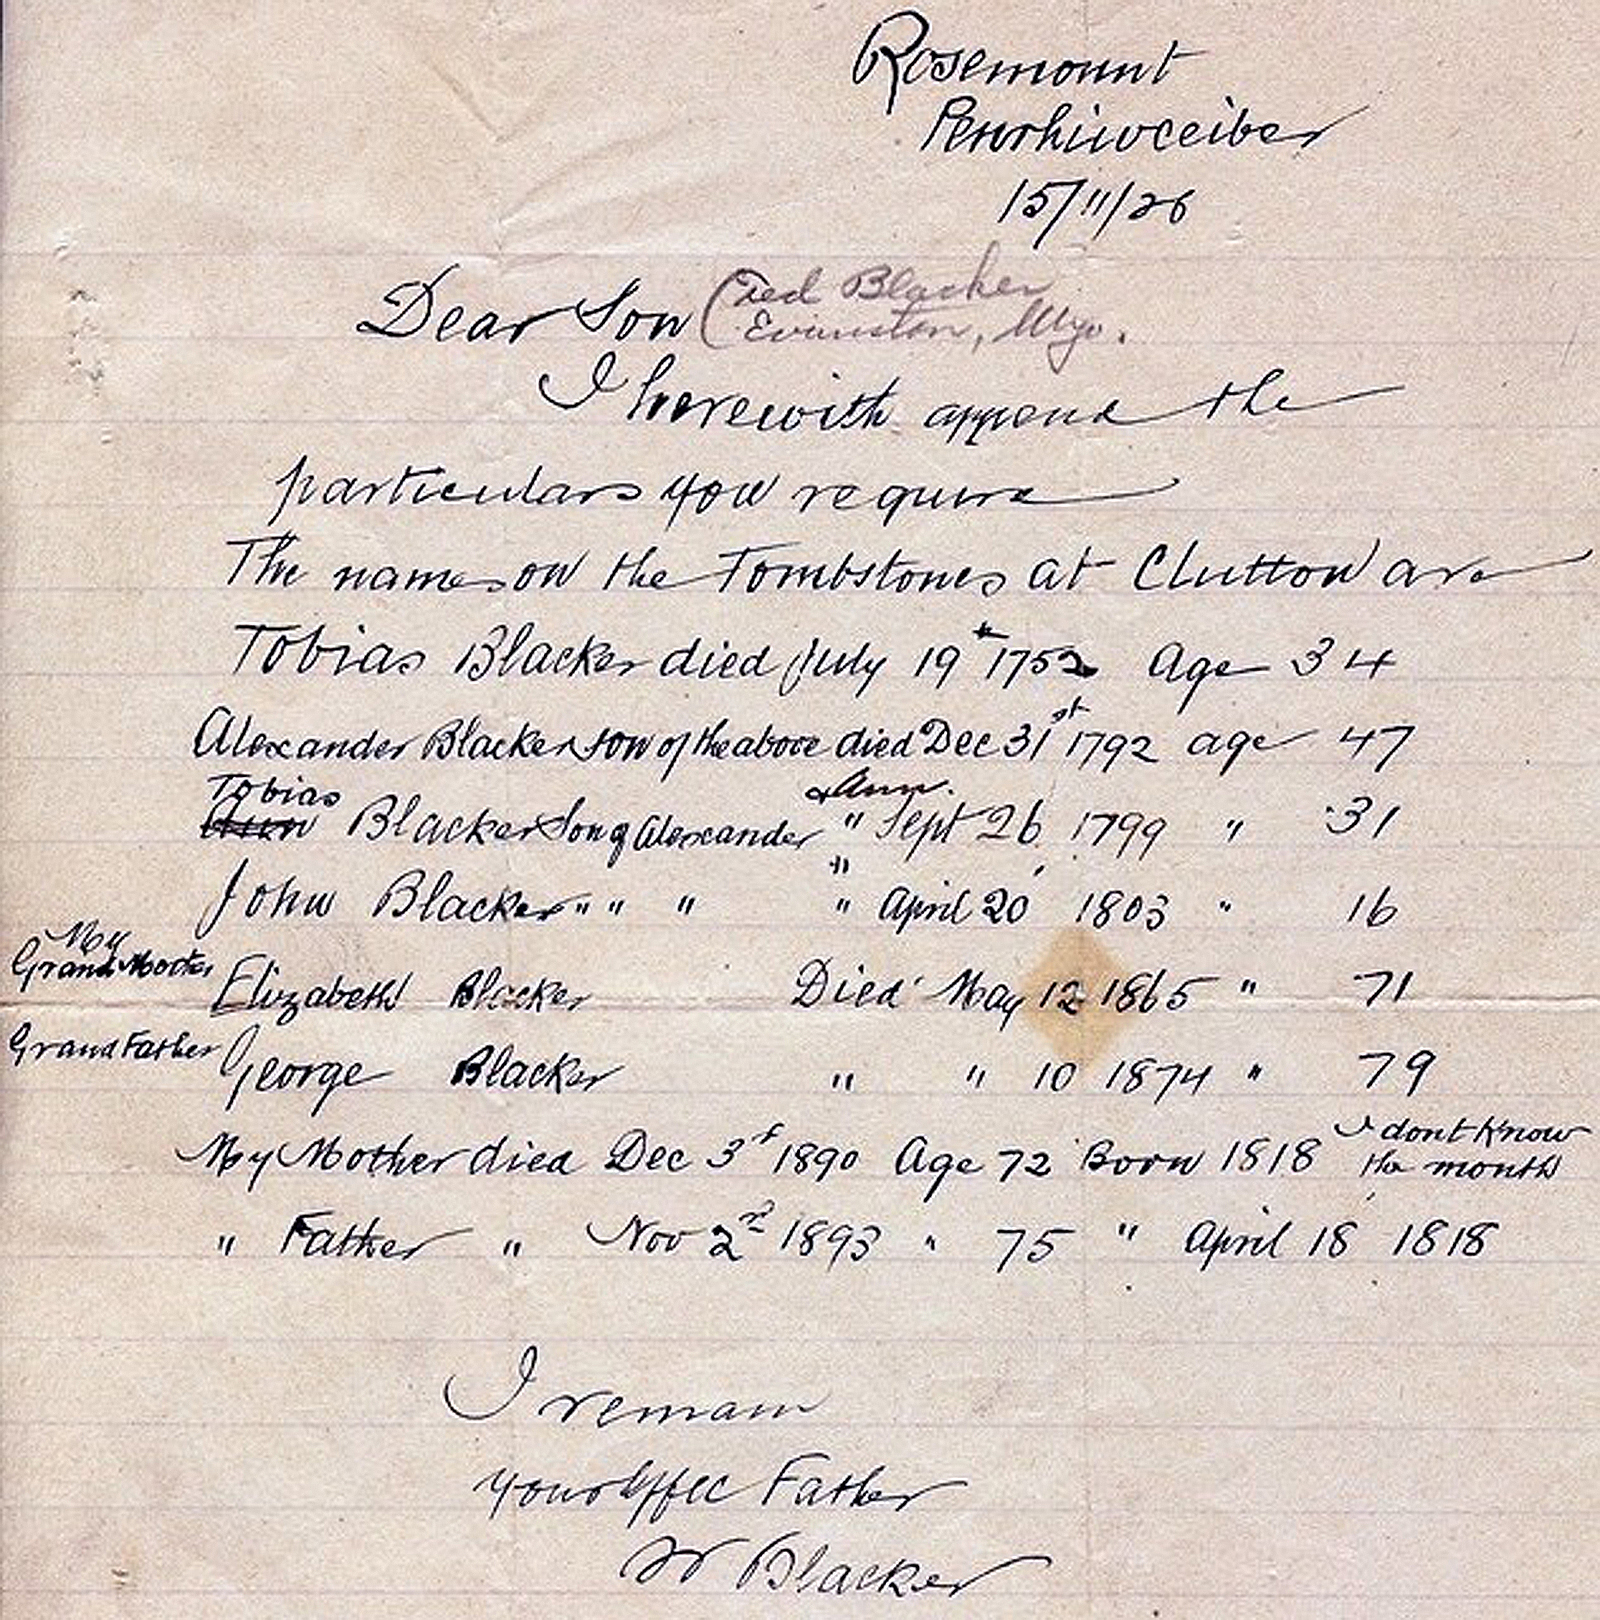 Rosemount
Penrhiwceiber
15/11/26
Dear Son (Ted Blacker
Evanston, Wyo.
I herewith append the
particulars you require
The names on the Tombstones at Clutton are
Tobias Blacker died July 19th 1752 Age 34
Alexander Blacker son of the above died Dec 31st 1792 age 47
Tobias & Ann.
Ann Blacker Son of Alexander " Sept 26 1799 " 31
"
John Blacker " " " " April 20 1803 " 16
My
Grand Mother Elizabeth Blacker Died May 12 1865 " 71
Grand Father George Blacker " " 10 1874 " 79
My Mother died Dec 3rd 1890 Age 72 Born 1818 I dont know
the month
" Father " Nov 2nd 1893 " 75 " April 18 1818
I remain
your Affec Father
W Blacker